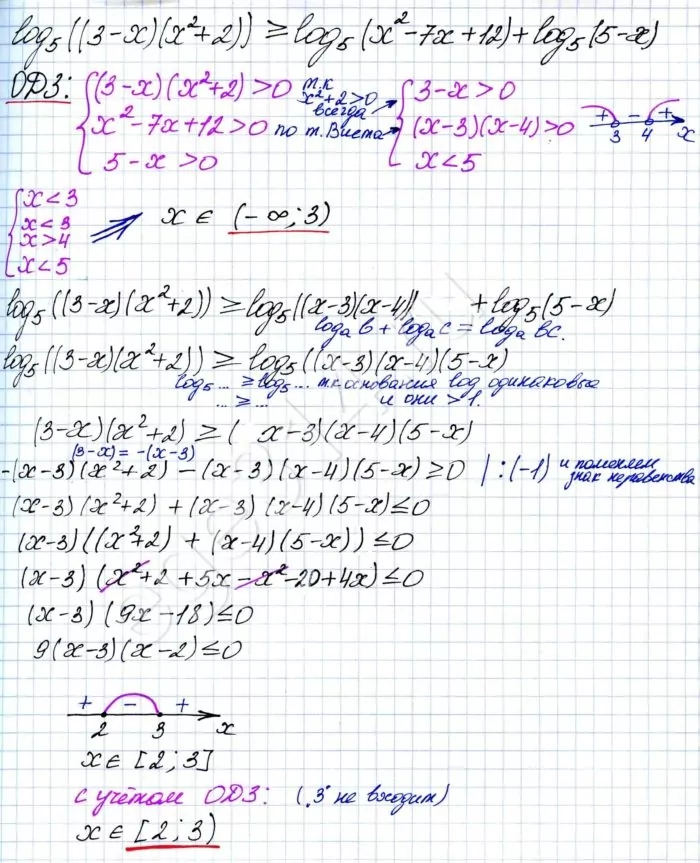 log₅((3-x)(x²+2)) ≥ log₅(x²-7x+12) + log₅(5-x)
ОДЗ: {(3-x)(x²+2)>0 т.к x²+2>0 всегда {3-x>0
x²-7x+12>0 по т. Виета (x-3)(x-4)>0 + - + 3 4 x
5-x>0 x<5
{x<3
x<3
x>4
x<5
⇒ x ∈ (-∞; 3)
log₅((3-x)(x²+2)) ≥ log₅((x-3)(x-4)) + log₅(5-x)
logₐb + logₐc = logₐbc.
log₅((3-x)(x²+2)) ≥ log₅((x-3)(x-4)(5-x)
log₅... ≥ log₅... т.к основания log одинаковые
... ≥ ... и они > 1.
(3-x)(x²+2) ≥ ( x-3)(x-4)(5-x)
(3-x) = -(x-3)
-(x-3)(x²+2) - (x-3)(x-4)(5-x) ≥ 0 | :(-1) и поменяем знак неравенства
(x-3)(x²+2) + (x-3)(x-4)(5-x) ≤ 0
(x-3)((x²+2) + (x-4)(5-x)) ≤ 0
(x-3)(x²+2+5x-x²-20+4x) ≤ 0
(x-3)(9x-18) ≤ 0
9(x-3)(x-2) ≤ 0
+ - +
2 3 x
x ∈ [2; 3]
с учётом ОДЗ: („3" не входит)
x ∈ [2; 3)